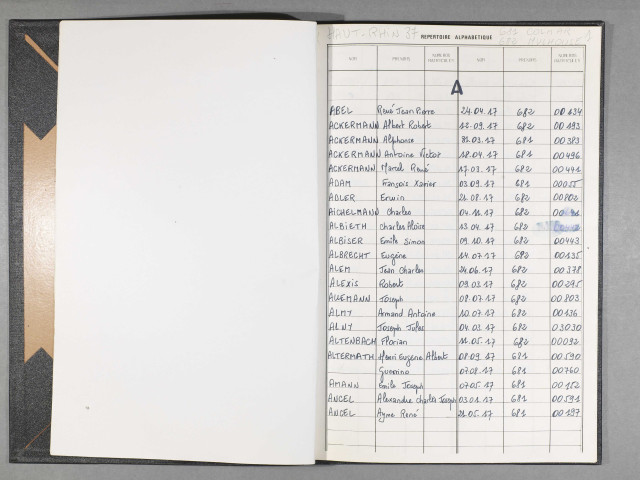 HAUT-RHIN 37 REPERTOIRE ALPHABETIQUE 681 COLMAR
682 MULHOUSE
NOM PRENOMS NUMEROS MATRICULES NOM PRENOMS NUMEROS MATRICULES
A
ABEL René Jean Pierre 24.04.17 682 00134
ACKERMANN Albert Robert 12.09.17 682 00193
ACKERMANN Alphonse 31.03.17 681 00383
ACKERMANN Antoine Victor 18.04.17 681 00496
ACKERMANN Marcel René 17.03.17 682 00441
ADAM François Xavier 03.09.17 681 00055
ADLER Erwin 21.08.17 682 00802
AICHELMANN Charles 04.11.17 682
ALBIETH Charles Aloïse 13.04.17 682
ALBISER Emile Simon 09.10.17 682 00443
ALBRECHT Eugène 14.07.17 682 00135
ALEM Jean Charles 24.06.17 682 00378
ALEXIS Robert 09.03.17 682 00295
ALLEMANN Joseph 08.07.17 682 00803
ALMY Armand Antoine 10.07.17 682 00136
ALNY Joseph Jules 04.03.17 682 03030
ALTENBACH Florian 11.05.17 682 00092
ALTERMATH Henri Eugène Albert 08.09.17 681 00590
Guerrino 07.08.17 681 00760
AMANN Emile Joseph 07.05.17 681 00152
ANCEL Alexandre Charles Joseph 03.01.17 681 00591
ANCEL Ayme René 21.05.17 681 00197